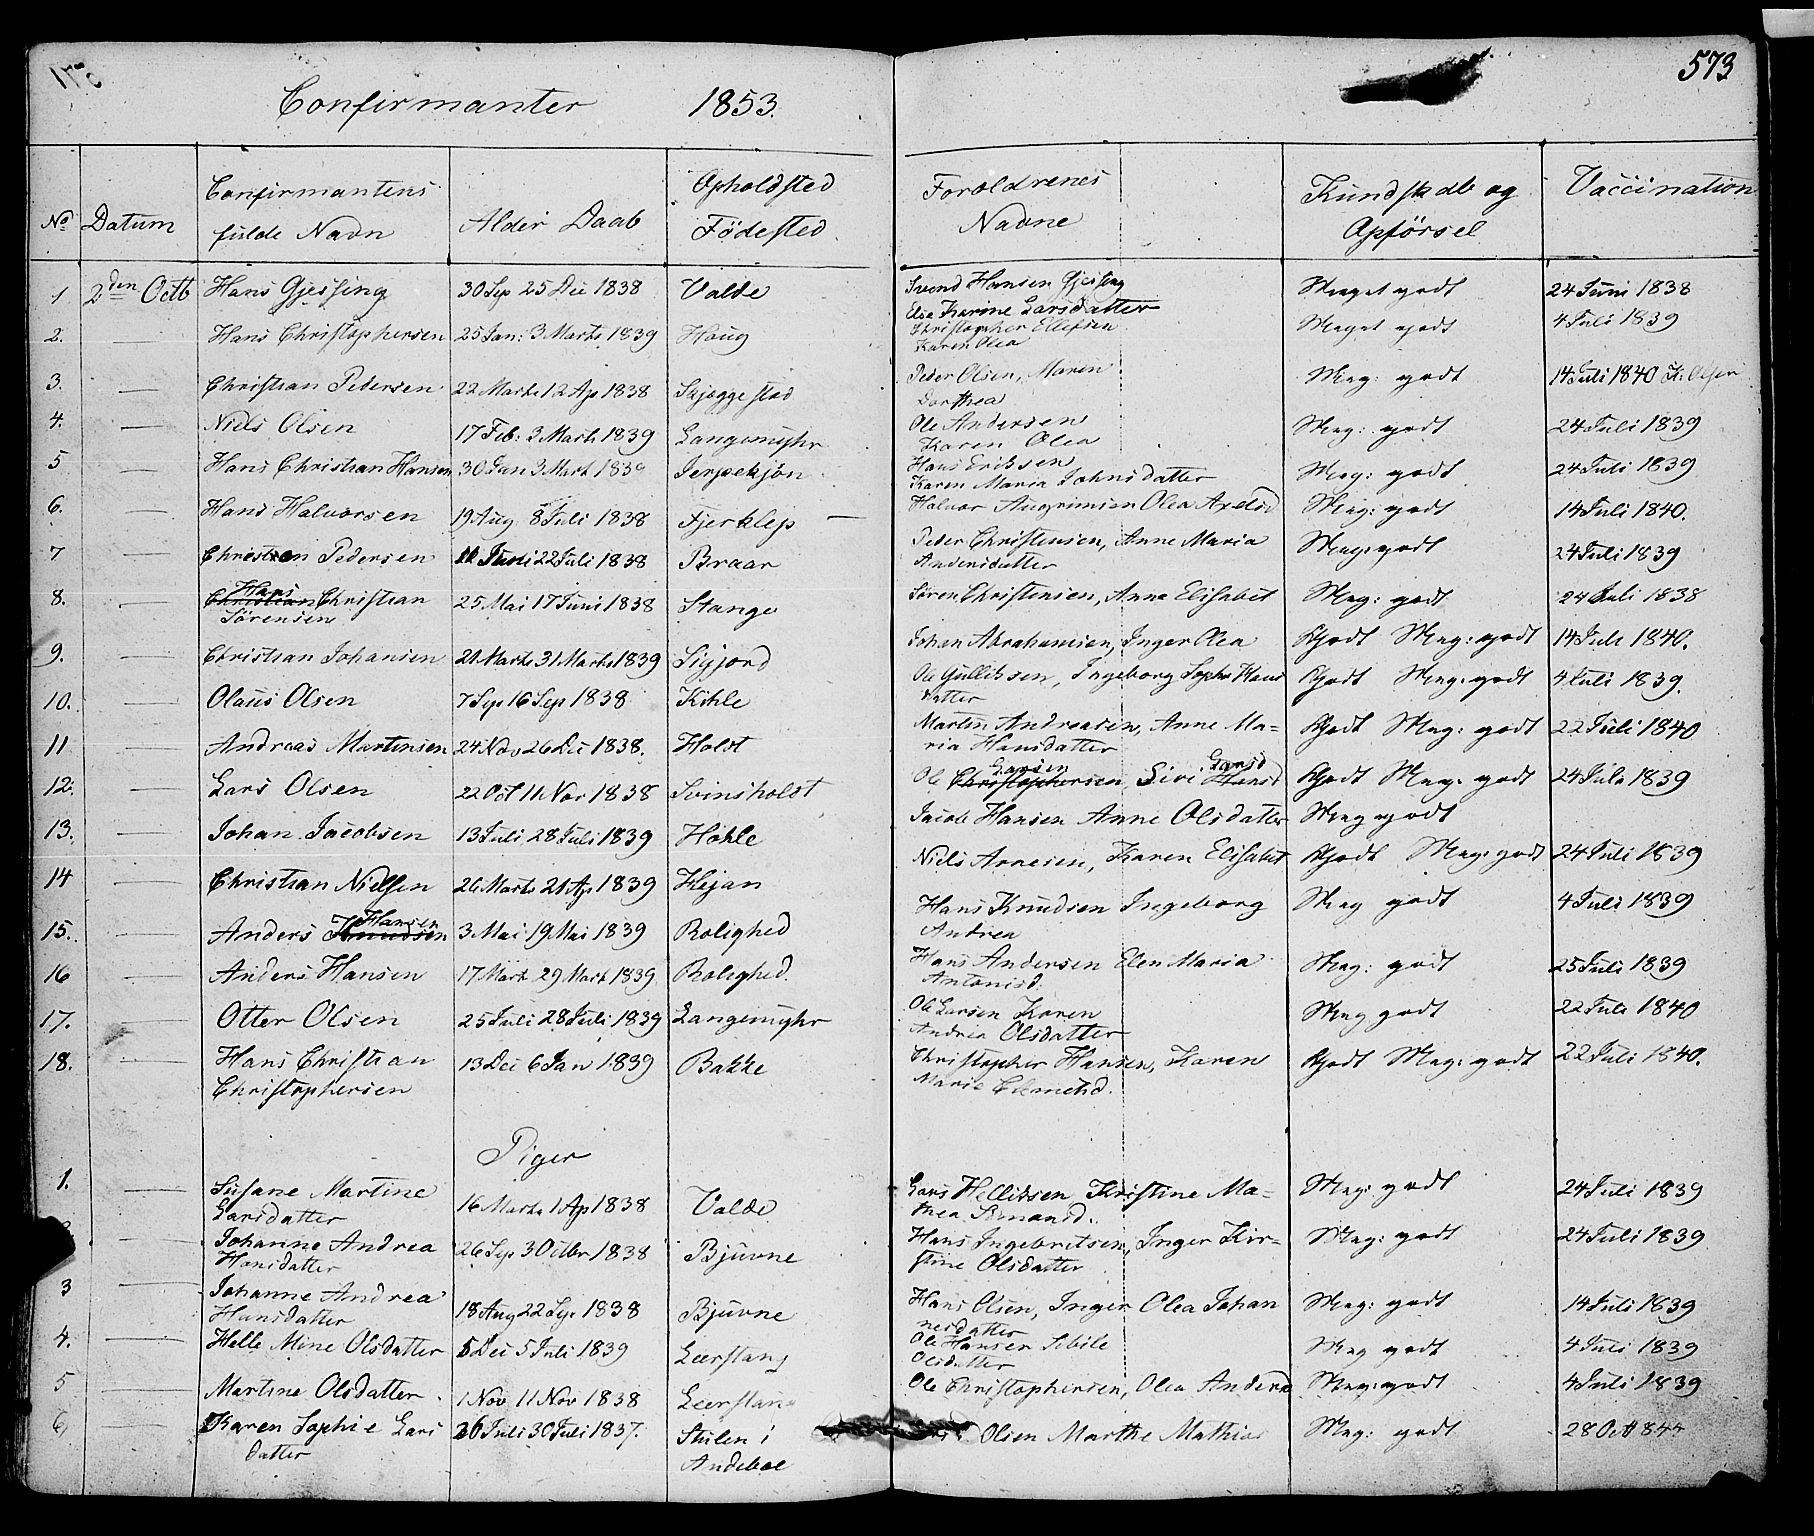 Confirmanter 1853.
573
No Datum Confirmantens fulde Navn Alder Daab Opholdsted Födested Foroldrenes Navne Kundskab og Opförsel Vaccination
1 2den Octb Hans Gjessing 30 Sep 25 Dec 1838 Valde Svend Hansen Gjessing Meget godt 24 Juni 1838
Else Karine Larsdatter
2. Hans Christophersen 25 Jan: 3 Marts 1839 Haug Christopher Ellefsen Meget godt 4 Juli 1839
Karen Olea
3. Christian Pedersen 22 Marts 12 Ap 1838 Skjeggestad Peder Olsen, Maren Meg: godt 14 Juli 1840
Dorthea
4. Niels Olsen 17 Feb: 3 Marts 1839 Langemyhr Ole Andersen Meg: godt 24 Juli 1839
Karen Olea
5 Hans Christian Hansen 30 Jan 3 Mart 1839 Hans Eriksen Meg: godt 24 Juli 1839
Karen Maria Johnsdatter
6. Hans Halvorsen 19 Aug 8 Juli 1838 Fjerklep Halvor Olea Axelsd Meg: godt 14 Juli 1840.
7 Christen Pedersen 11 Juni 22 Juli 1838 Braar Peder Christensen, Anne Maria Meg: godt 24 Juli 1839
Andersdatter
8. Hans
Christian Christian 25 Mai 17 Juni 1838 Stange Sören Christensen, Anne Elisabet Meg: godt 24 Juli 1838
Sörensen
9. Christian Johansen 21 Marts 31 Marts 1839 Sigjord Johan Abrahamsen, Inger Olea Godt Meg: godt 14 Juli 1840.
10. Olaus Olsen 7 Sep 16 Sep 1838 Kihle Ole Gullichsen, Ingeborg Sophie Hans Godt Meg: godt 4 Juli 1839.
datter
11 Andreas Martinsen 24 Nov 26 Dec 1838. Holst Martin Andreasen, Anne Ma= Godt Meg: godt 22 Juli 1840
ria Hansdatter
12. Lars Olsen 22 Oct 11 Nov 1838 Svinsholst Ole Christophersen Larsen, Siri Hansd Larsd Godt Meg: godt 24 Juli 1839
13. Johan Jacobsen 13 Juli 28 Juli 1839 Hohle Jacob Hansen Anne Olsdatter Meg godt
14 Christian Nielsen 26 Marts 21 Ap 1839 Kejan Niels Arnesen, Karen Elisabet Godt Meg: godt 24 Juli 1839
15. Anders Knudsen Hansen 3 Mai 19 Mai 1839 Rolighed Hans Knudsen Ingeborg Meg godt 4 Juli 1839
Andrea
16 Anders Hansen 17 Mart 29 Mart 1839 Rolighed. Hans Andersen Elen Maria Meg: godt 25 Juli 1839
Antonisd.
17. Otter Olsen 25 Juli 28 Juli 1839 Langemyhr Ole Larsen Karen Meg godt 22 Juli 1840
Andrea Olsdatter
18. Hans Christian 13 Dec 6 Jan 1839 Bakke Christopher Hansen, Karen Godt Meg: godt 22 Juli 1840.
Christophersen Marie Clemetsd.
Piger
1. Susane Martine 16 Marts 1 Ap 1838 Valde Lars Hellichsen Kristine Ma= Meg: godt 24 Juli 1839
Larsdatter thea Simonsd.
Johanne Andrea 26 Sep 30 Octbr 1838 Bjuvne Hans Ingebretsen, Inger Kir= Meg: godt 24 Juli 1839
Hansdatter stine Olsdatter
3 Johanne Andrea 18 Aug 22 Sep 1838 Bjuvne Hans Olsen, Inger Olea Johan Meg: godt 14 Juli 1839
Hansdatter nesdatter
4. Helle Mine Olsdatter 5 Dec 5 Juli 1839 Leerstang Ole Hansen Sibile Meg godt 4 Juli 1839
Olsdatter
5 Martine Olsdatter 1 Nov 11 Nov 1838 Leerstang Ole Christophersen, Olea Anders Meg: godt 4 Juli 1839
6. Karen Sophie Lars 26 Juli 30 Juli 1837. Stulen i Olsen Marthe Mathias Meg: godt 28 Oct 1844
datter Andeboe